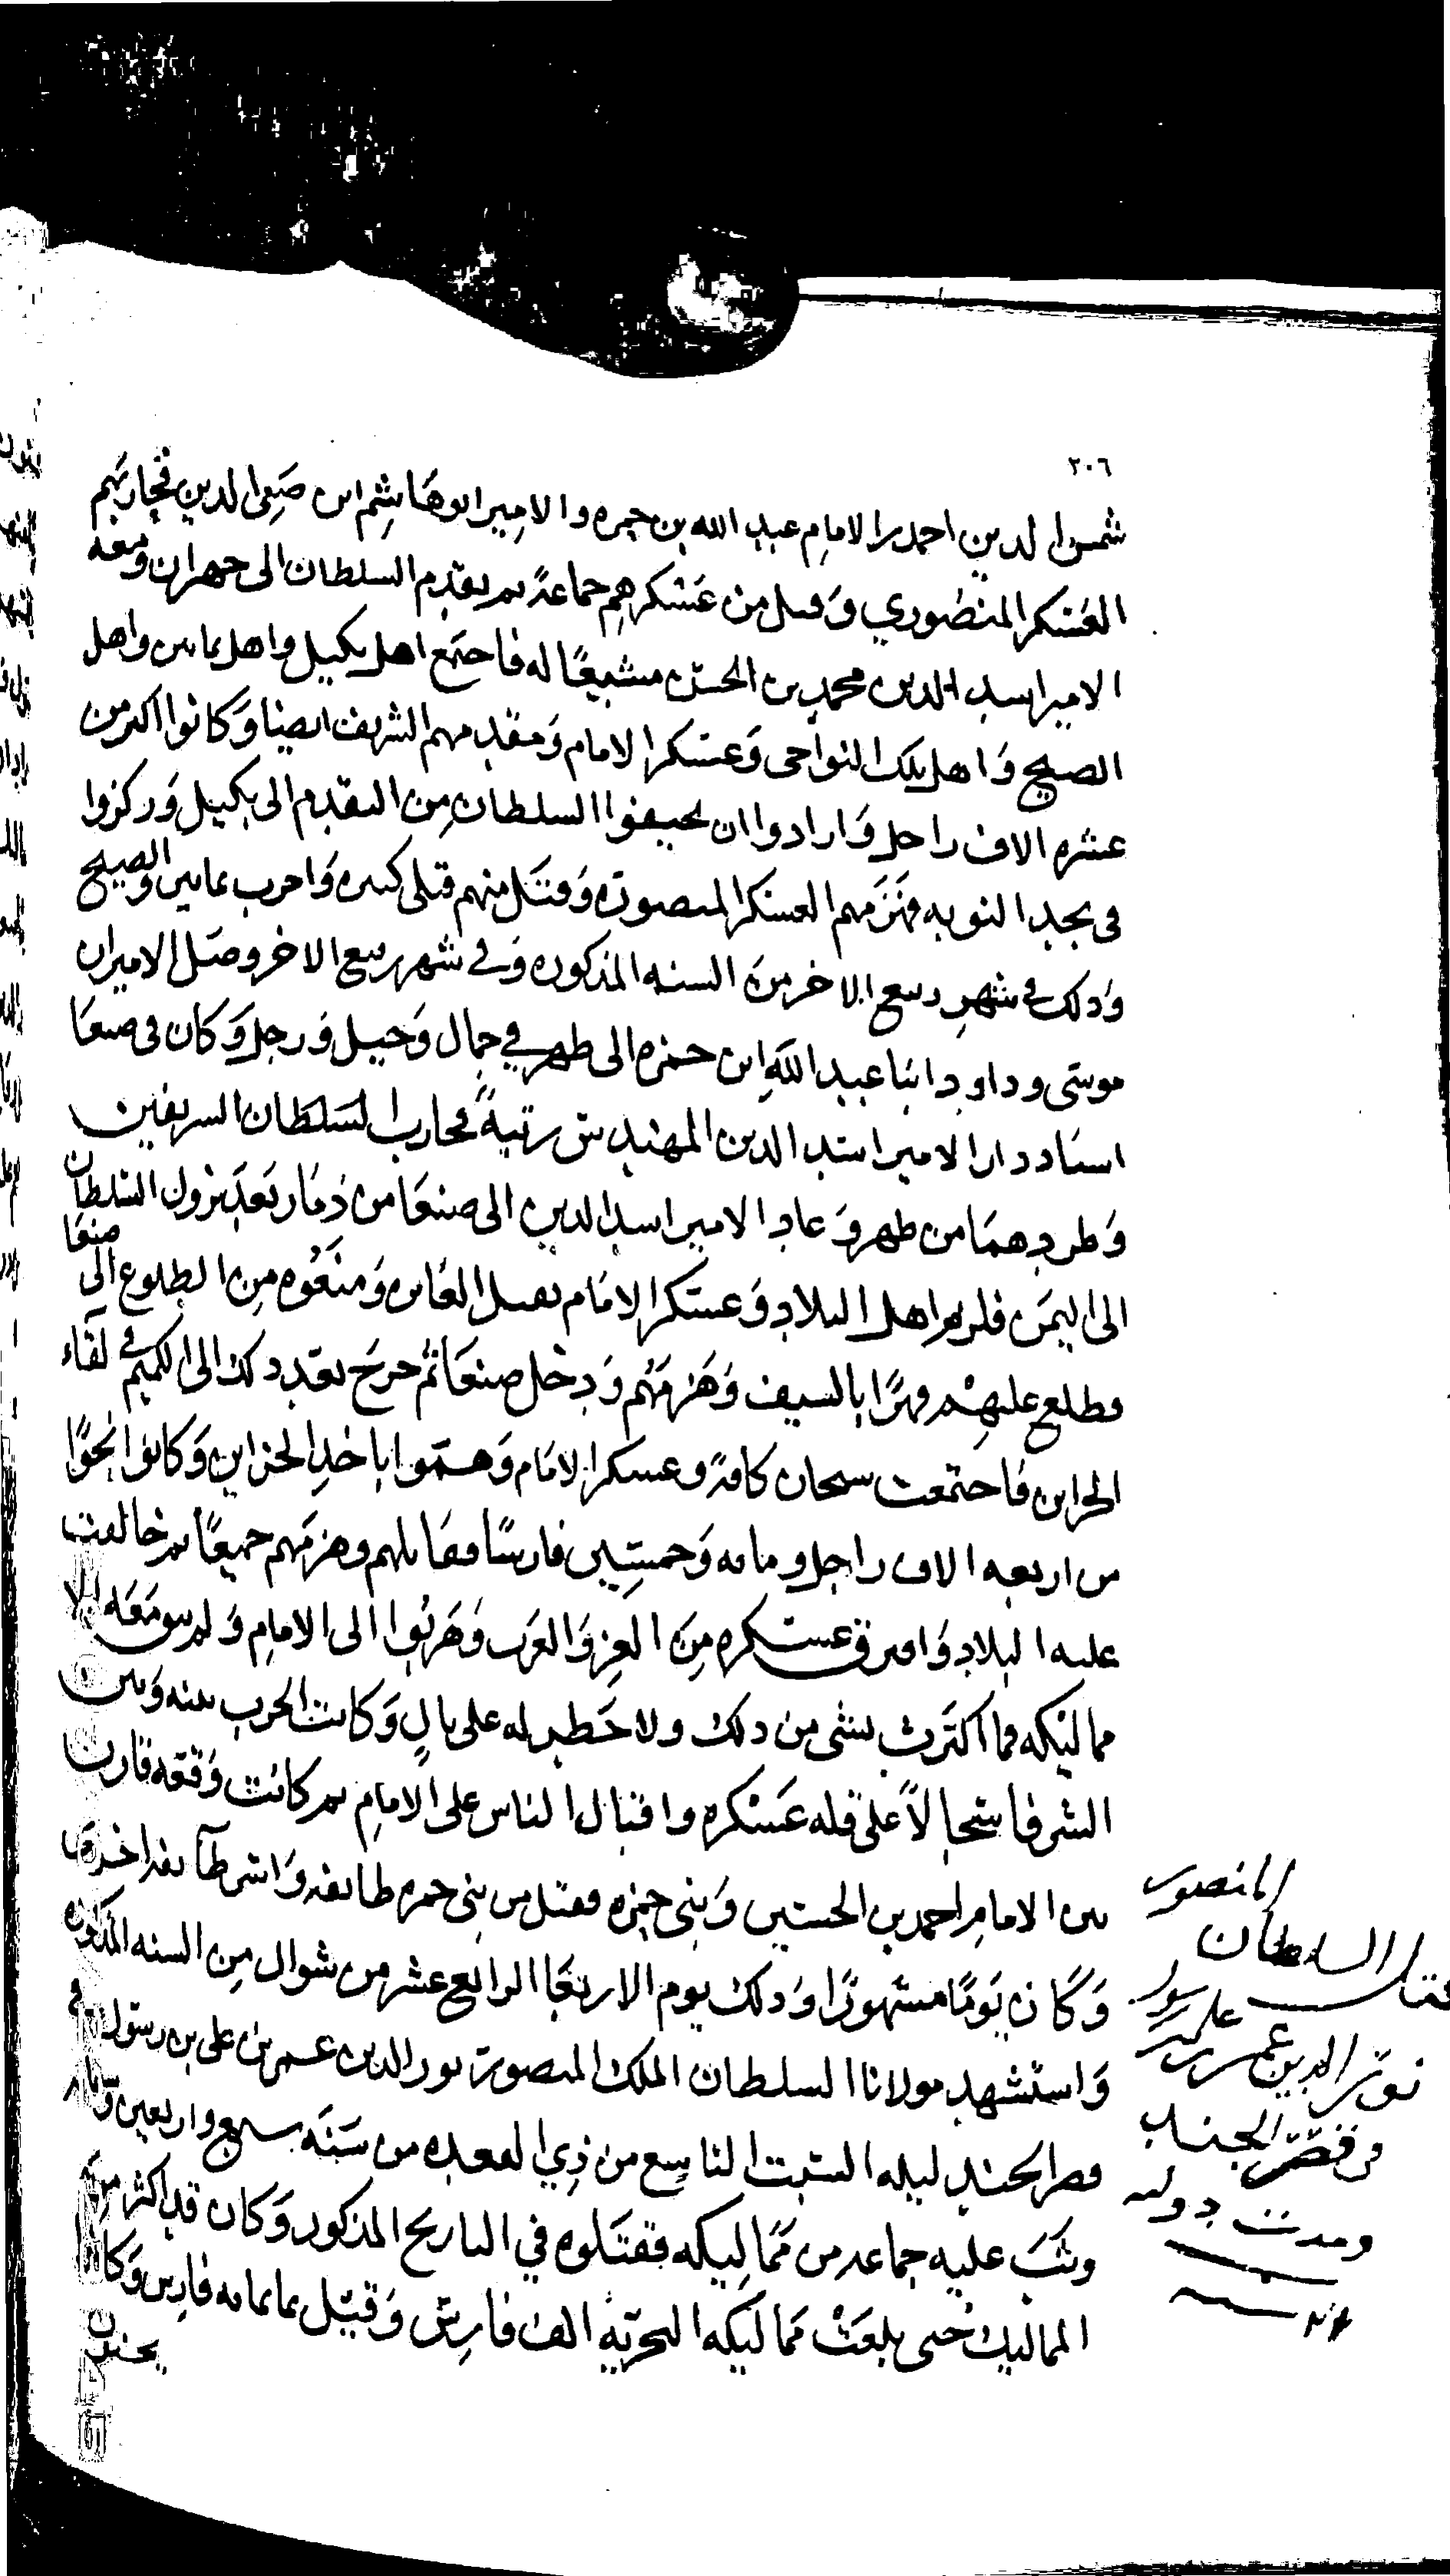 ٢٠٦
شمس الدين احمد بن الامام عبد الله بن حمزه والامير ابو هاشم ابن صفي الدين فحاربهم
العسكر المنصوري وقتل من عسكرهم جماعة ثم تقدم السلطان الى جهران ومعه
الامير اسد الدين محمد بن الحسن مشيعًا له فاجتمع اهل بكيل واهل واهل
الصيح واهل تلك النواحى وعسكر الامام ومقدمهم الشريف ايضا وكانوا اكثر من
عشره الاف راجل وارادوا ان السلطان من التقدم الى بكيل وركزوا
فى نجد النوبه فهزمهم العسكر المنصوره وقتل منهم قتلى كثيره واخرب والصيح
وذلك في شهر ربيع الاخر من السنه المذكوره وفي شهر ربيع الاخر وصل الاميران
موسى وداود ابنا عبد الله ابن حمزه الى ظهر في جمال وخيل ورجل وكان فى صنعا
استاد دار الامير اسد الدين المهند رتبة فحارب السلطان الشريفين
وطردهما من ظهر وعاد الامير اسد الدين الى صنعا من ذمار بعد نزول السلطان
الى اليمن فلزم اهل البلاد وعسكر الامام ومنعوه من الطلوع الى صنعا
فطلع عليهم قهرًا بالسيف وهزمهم ودخل صنعا ثم خرج بعد ذلك الى الكميم في لقاء
الخزاين فاجتمعت سنحان كافة وعسكر الامام وهموا باخذ الخزاين وكانوا نحوًا
من اربعه الاف راجل ومايه وخمسين فارسًا فقاتلهم وهزمهم جميعًا ثم خالفت
عليه البلاد وافترق عسكره من الغز والعرب وهربوا الى الامام ولم يبق معه الا
مماليكه فما اكترث بشى من ذلك ولا خطر له على بال وكانت الحرب بينه وبين
الشرفا سجالاً على قله عسكره واقبال الناس على الامام ثم كانت وقعه قارن
بين الامام احمد بن الحسين وبنى حمزه فقتل من بنى حمزه طايفه واسر طآيفه اخرى
وكان يومًا مشهورًا وذلك يوم الاربعا الرابع عشر من شوال من السنه المذكوره
واستشهد مولانا السلطان الملك المنصور نور الدين عمر بن على بن رسول في
قصر الجند ليله السبت التاسع من ذي القعده من سنه سبع واربعين وستمايه
وثب عليه جماعه من مماليكه فقتلوه في التاريخ المذكور وكان قد اكثر من
المماليك حتى بلغت مماليكه البحرية الف فارس وقيل ثمانمايه فارس وكانوا
يحسنون
المنصور
قتل السلطان
نور الدين عمر بن علي بن رسول
في قصر الجند
ومدت دولته